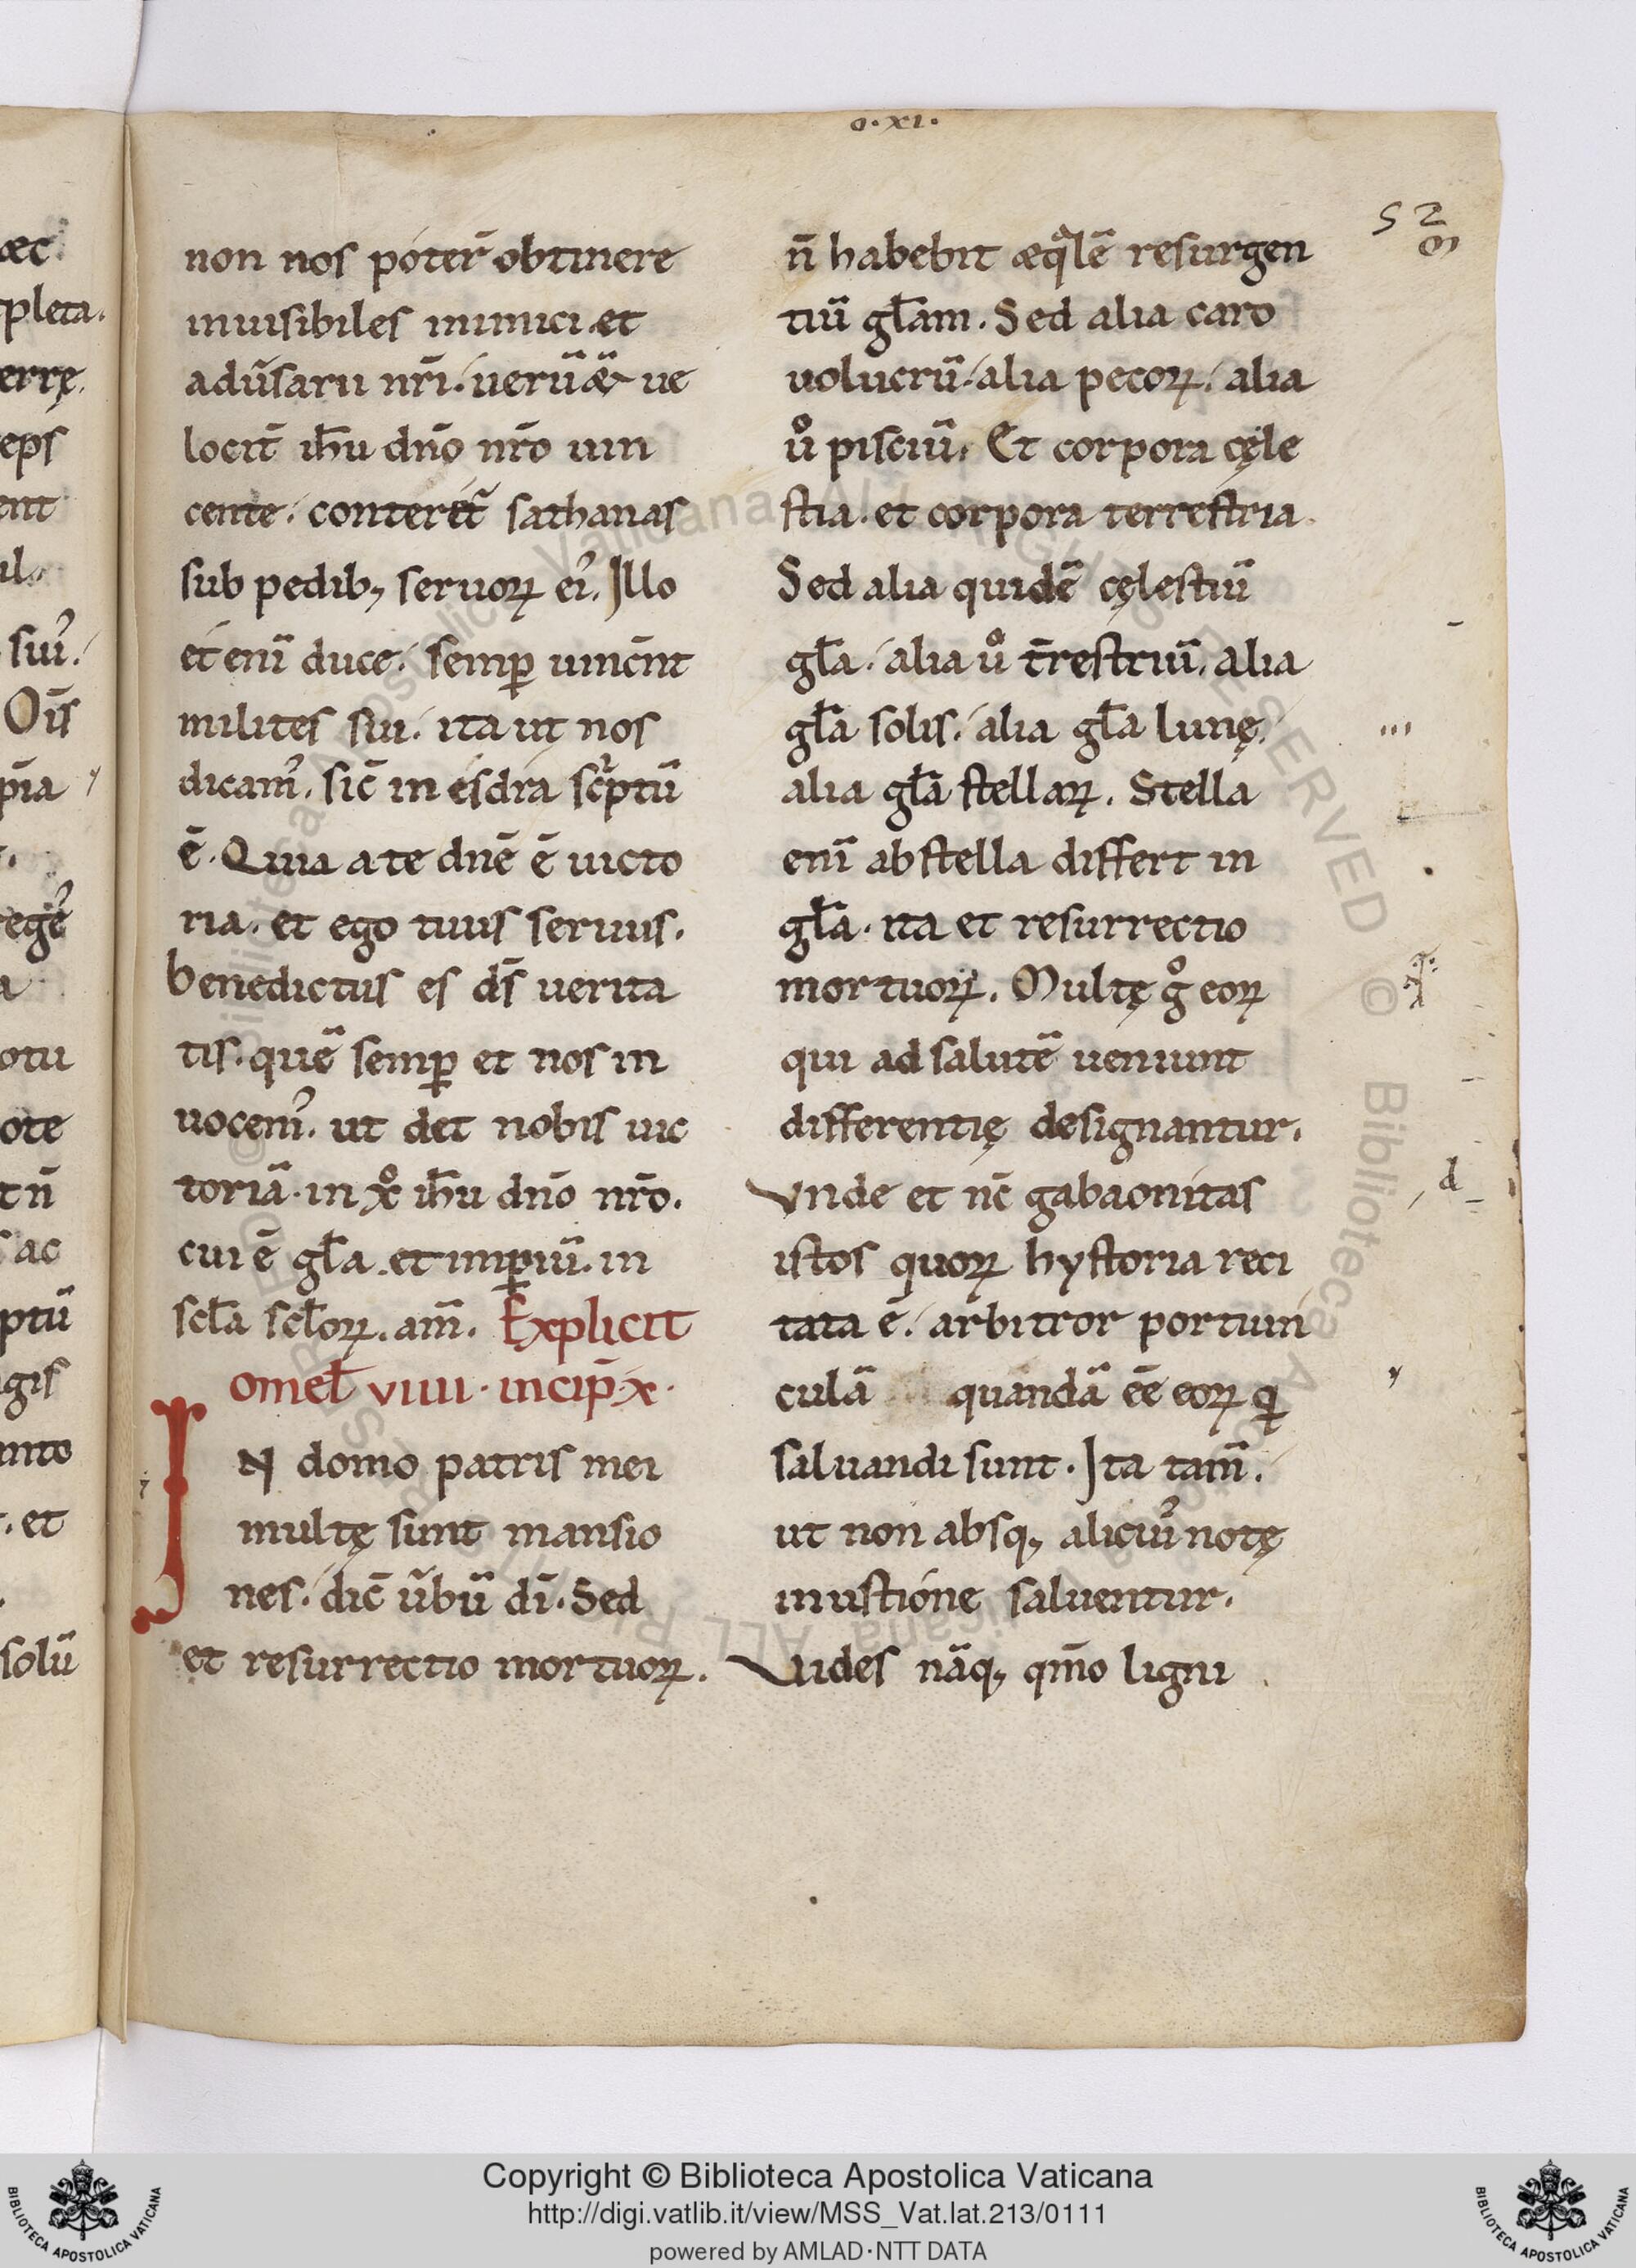 o·xi·
52
non nos poter̄ obtinere
inuisibiles inimici. et
adũsarii nr̄i. uerũ & ue
locit̄ ih̄u dn̄o nr̄o uin
cente. conteret᷑ sathanas
sub pedib; seruoꝝ ei᾽. Illo
et eni᷑ duce. semꝑ uincn̄t
milites sui. ita ut nos
dicam᾽. sic̄ in esdra sc'ptũ
ē. Quia a te dn̄e ē uicto
ria. et ego tuus seruus.
benedictus es ds̄ uerita
tis. quē semꝑ et nos in
uocem᾽. ut det nobis uic
toriā. in xͦ ih̄u dn̄o nr̄o.
cui ē gl̄a. et imꝑiũ. in
scl̄a scl̄oꝝ. am̄. Explicit
omel̄ viiii. incip̄. x.
IN domo patris mei
multę sunt mansio
nes. dic̄ ũbũ dī. Sed
et resurrectio mortuoꝝ.
n̄ habebit æqͣlē resurgen
tiũ gl̄am. Sed alia caro
uolucrũ. alia pecoꝝ. alia
uͦ pisciũ. Et corpora cęle
stia. et corpora terrestria.
Sed alia quidē cęlestiũ
gl̄a. alia uͦ t̄restriũ. alia
gl̄a solis. alia gl̄a lunę.
alia gl̄a stellaꝝ. Stella
enī ab stella differt in
gl̄a. ita et resurrectio
mortuoꝝ. Multę gͦ eoꝝ
qui ad salutē ueniunt
differentię designantur.
Vnde et nc̄ gabaonitas
istos quoꝝ hystoria reci
tata ē. arbitror portiun
culā quandā ēe eoꝝ q'
saluandi sunt. Ita tam̄.
ut non absq; alicui᾽ notę
inustione saluentur.
Vides nāq; qm̄o ligni
d
Copyright © Biblioteca Apostolica Vaticana
http://digi.vatlib.it/view/MSS_Vat.lat.213/0111
powered by AMLAD·NTT DATA
BIBLIOTECA APOSTOLICA VATICANA
BIBLIOTECA APOSTOLICA VATICANA